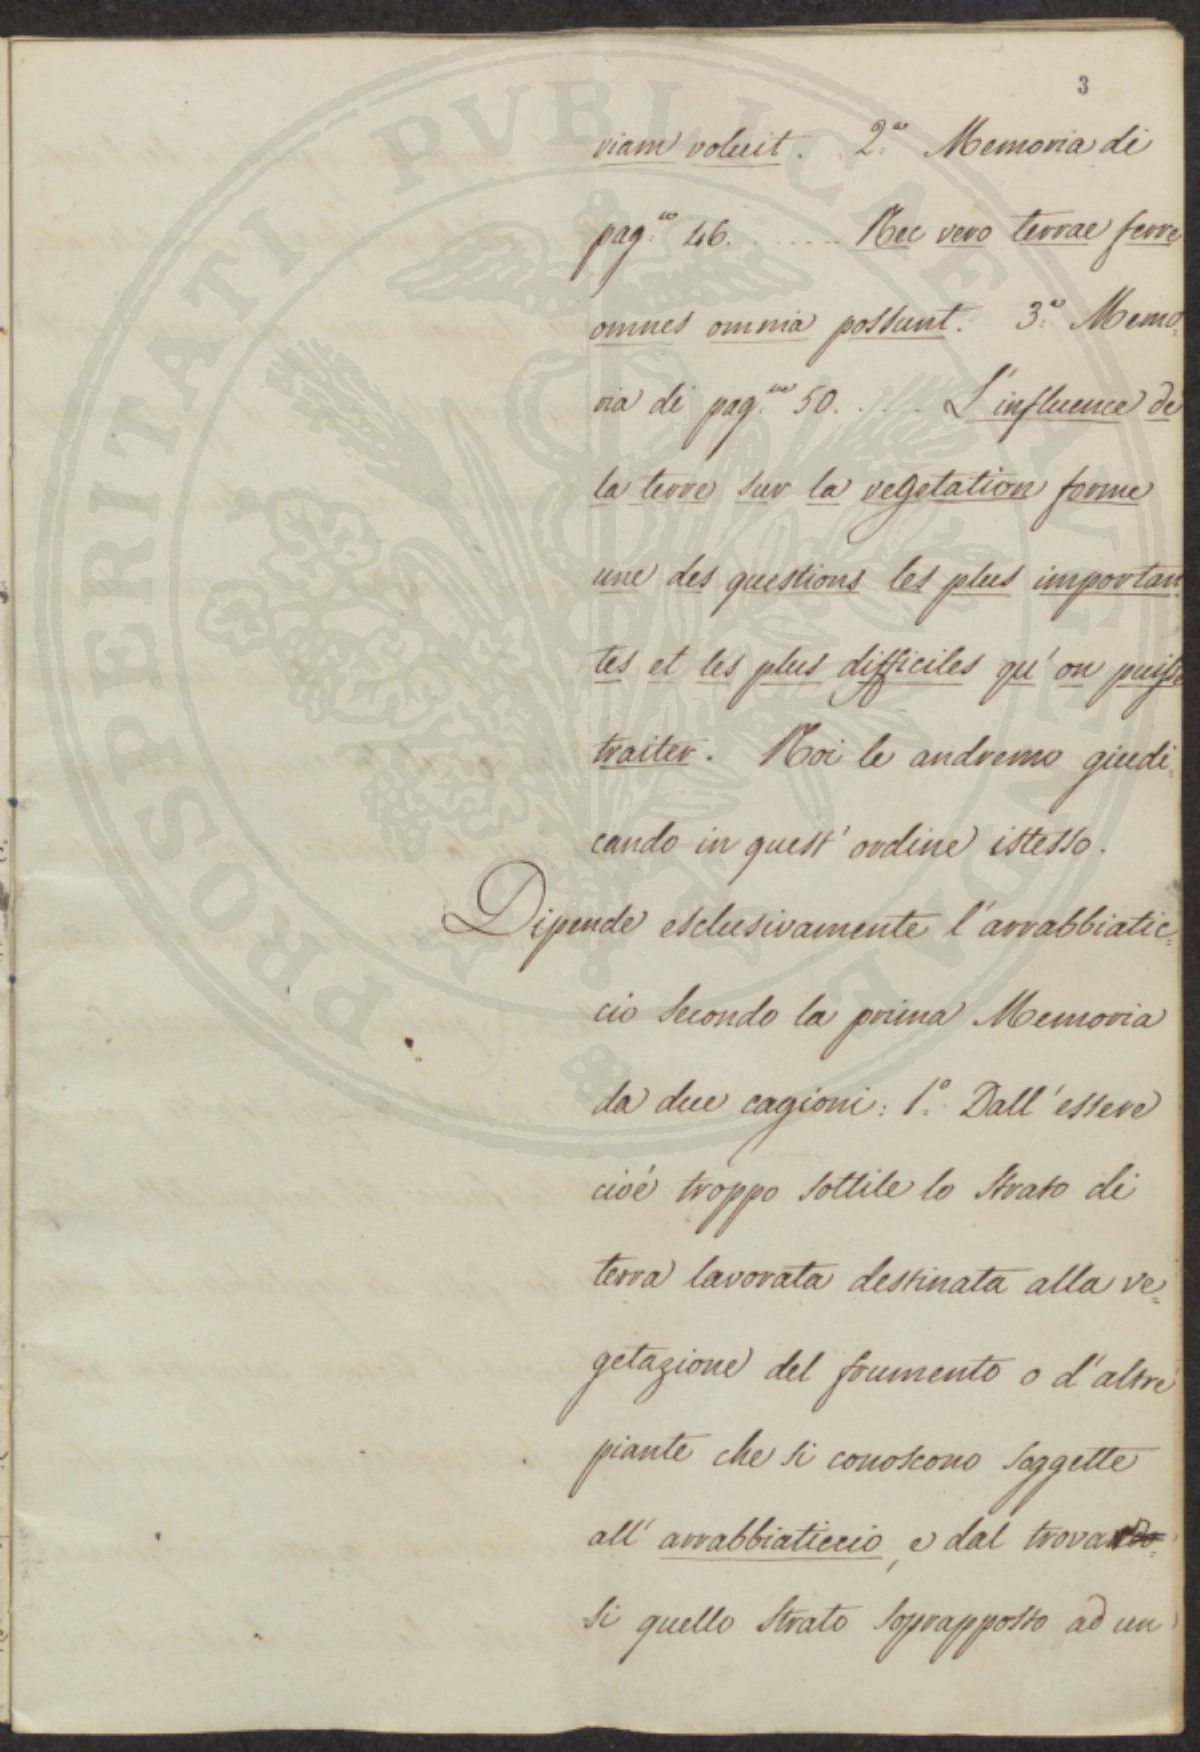 3
viam voluit. 2.ª Memoria di
pag.ne 46. ....... Nec vero terrae ferre
omnes omnia possunt. 3.ª Memo=
ria di pag.ne 50. .... L'influence de
la terre sur la vegetation forme
une des questions les plus importan=
tes et les plus difficiles qu'on puisse
traiter. Noi le andremo giudi=
cando in quest'ordine istesso.
Dipende esclusivamente l'arrabbiatic=
cio secondo la prima Memoria
da due cagioni: 1.º Dall'essere
cioè troppo sottile lo strato di
terra lavorata destinata alla ve=
getazione del frumento o d'altre
piante che si conoscono soggette
all'arrabbiaticcio, e dal trovar=
si quello strato soprapposto ad un
PROSPERITATI PVBLICAE AVGENDAE